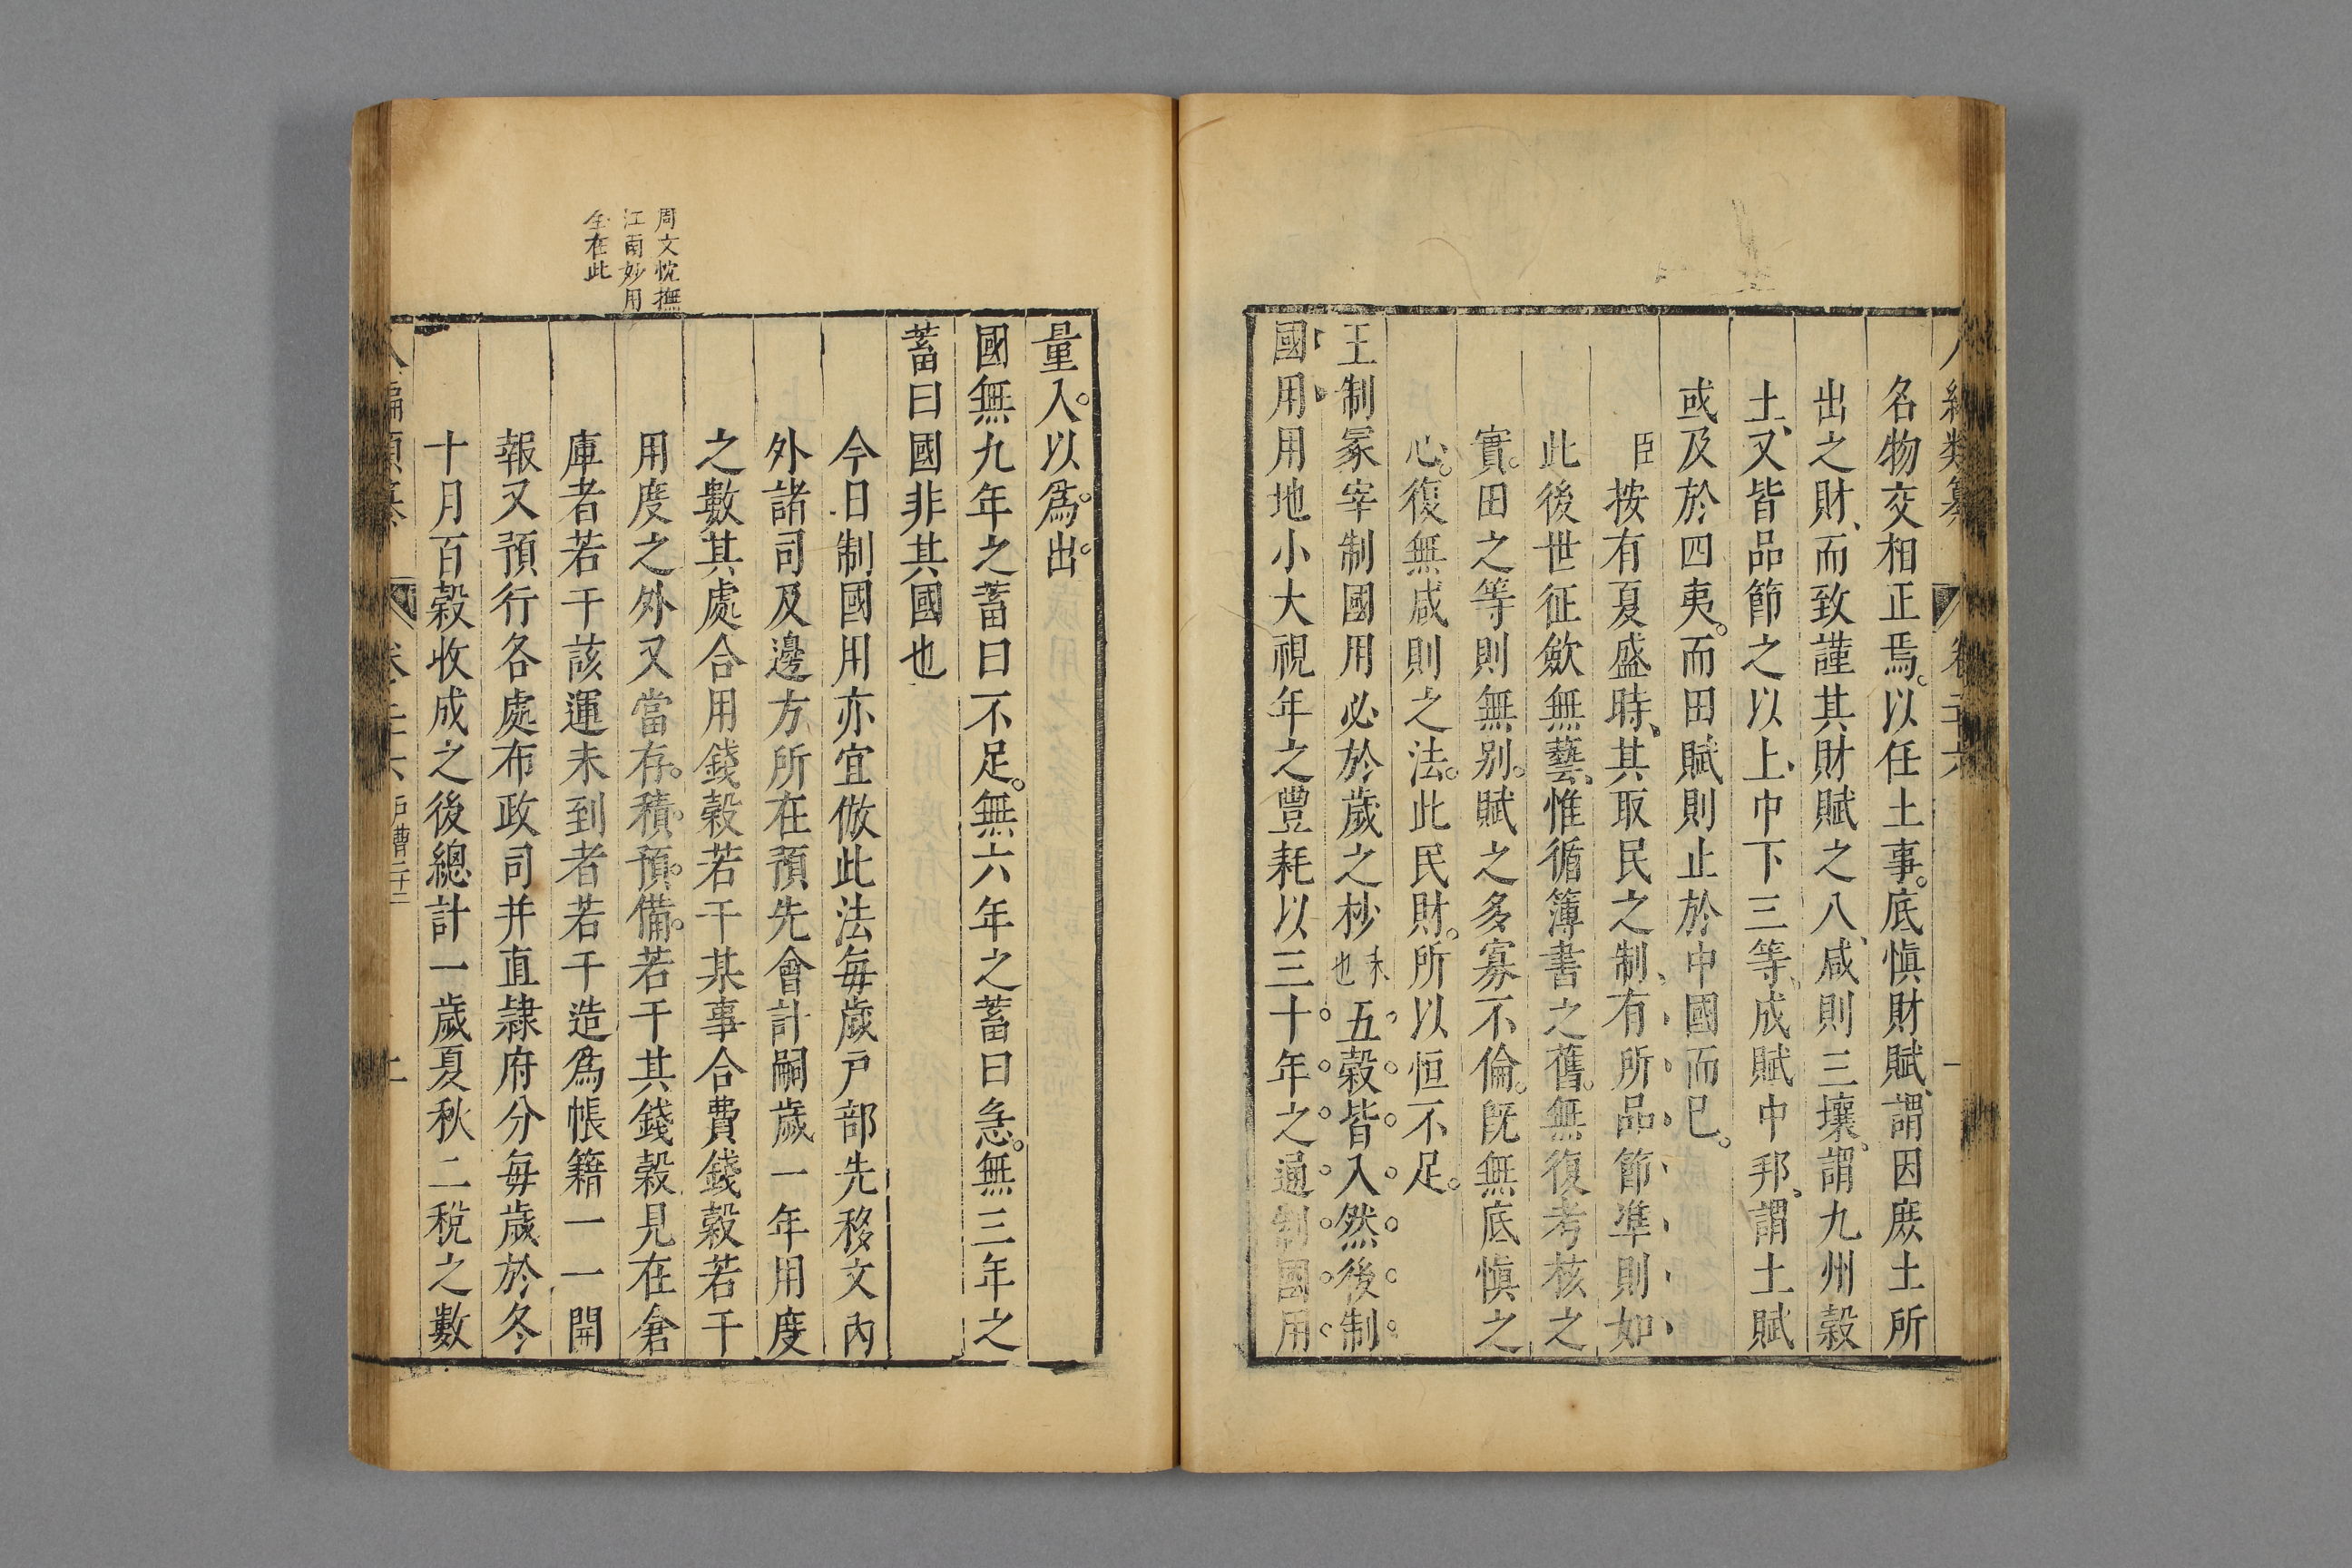 名物交相正焉。以任土事。底慎財賦、謂因庶土所
出之財、而致謹其財賦之入、咸則三壤、謂九州穀
土、又皆品節之以上、中下三等、成賦中邦、謂土賦
或及於四夷。而田賦則止於中國而已。
臣
按有夏盛時、其取民之制、有所品節準則如
此後世征斂無藝、惟循簿書之舊。無復考核之
實。田之等則無别。賦之多寡不倫。旣無底慎之
心。復無咸則之法。此民財。所以恒不足。
王制冢宰制國用必於歲之杪末也五穀皆入然後制
國用用地小大視年之豐耗以三十年之通制國用
量入以爲出。
國無九年之蓄曰不足。無六年之蓄曰急。無三年之
蓄曰國非其國也
今日制國用亦宜倣此法每歲戸部先移文內
外諸司及邊方所在預先會計嗣歲一年用度
之數某處合用錢穀若干某事合費錢穀若干
用度之外又當存。積、預。備。若干其錢穀見在倉
庫者若干該運未到者若干造爲帳籍一一開
報又預行各處布政司并直隷府分每歲於冬
十月百穀收成之後總計一歲夏秋二稅之數
周文忱撫
江南妙用
全在此
八編類纂 卷二十六 戸曹二十二